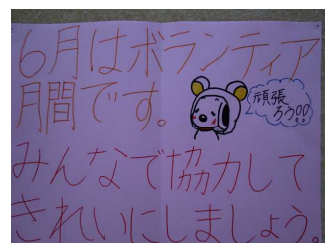 6月はボランティア
月間です。
頑張
ろう!!
みんなで協力して
きれいにしましょう。